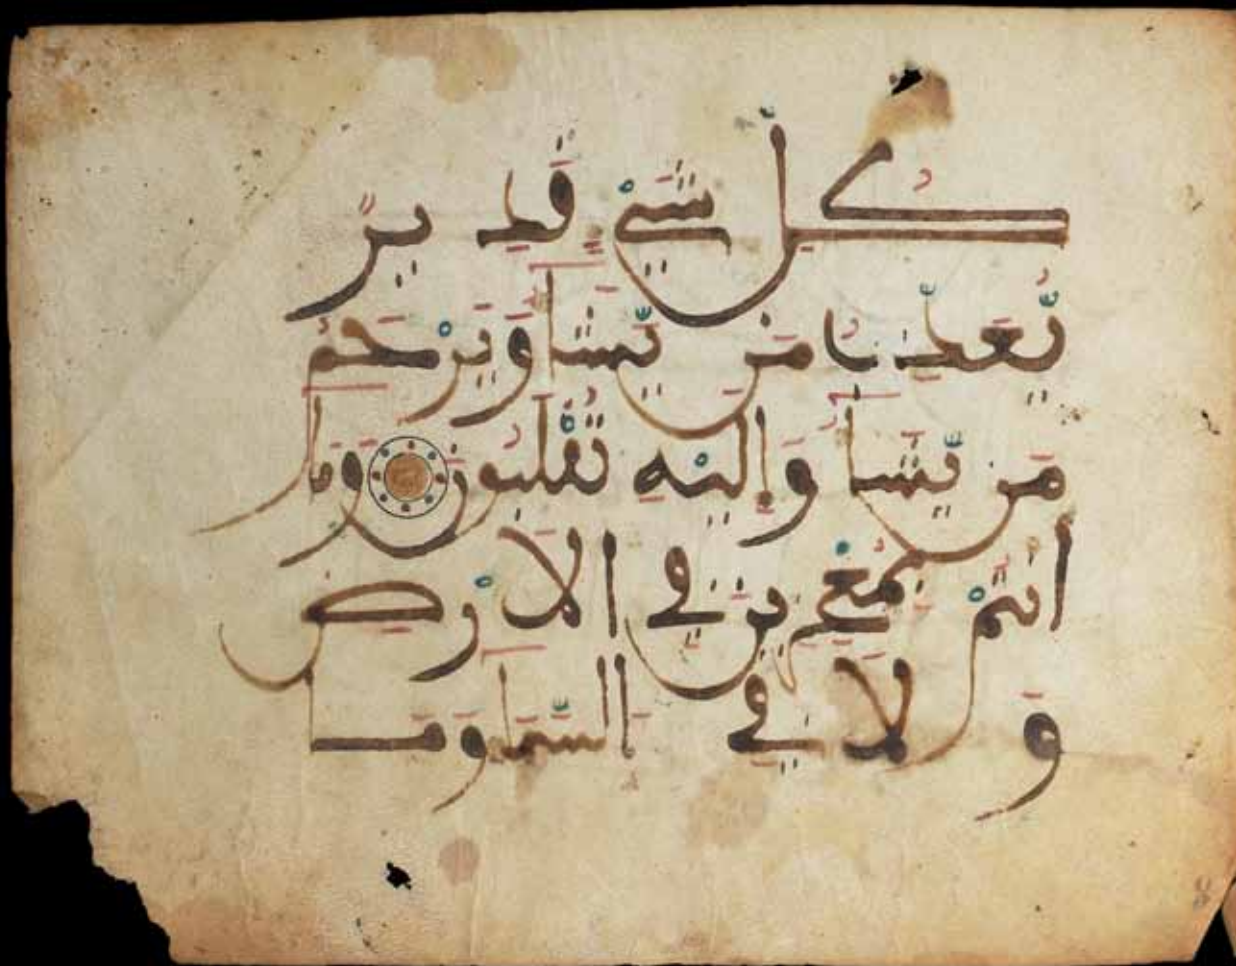 كُلِّ شَيْءٍ قَدِيرٌ
يُعَذِّبُ مَن يَّشَآءُ وَيَرْحَمُ
مَن يَّشَآءُ وَإِلَيْهِ تُقْلَبُونَ وَمَآ
أَنتُمْ بِمُعْجِزِينَ فِي الْأَرْضِ
وَلَا فِي السَّمَآءِ وَمَا
8